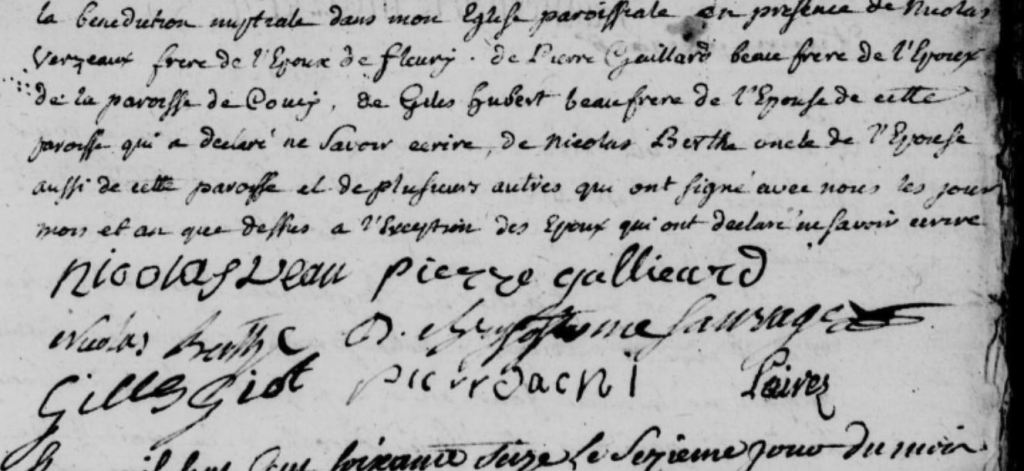 la benediction nuptiale dans mon Eglise paroissiale en presence de Nicolas
Verzeaux frere de l'Epoux de fleury . de Pierre Gaillard beau frere de l'Epoux
de la paroisse de Coucy, de Giles hubert beaufrere de l'Epouse de cette
paroisse qui a declaré ne savoir ecrire, de Nicolas Berthe oncle de l'Epouse
aussi de cette paroisse et de plusieurs autres qui ont signé avec nous les jour
mois et an que dessus a l'Exception des Epoux qui ont declaré ne savoir ecrire
Nicolas Veau pierre gallieard
Nicolas Berthe sauvage
Gilles Giot pierr
mil sept Cent soixante seize le sezieme jour du mois